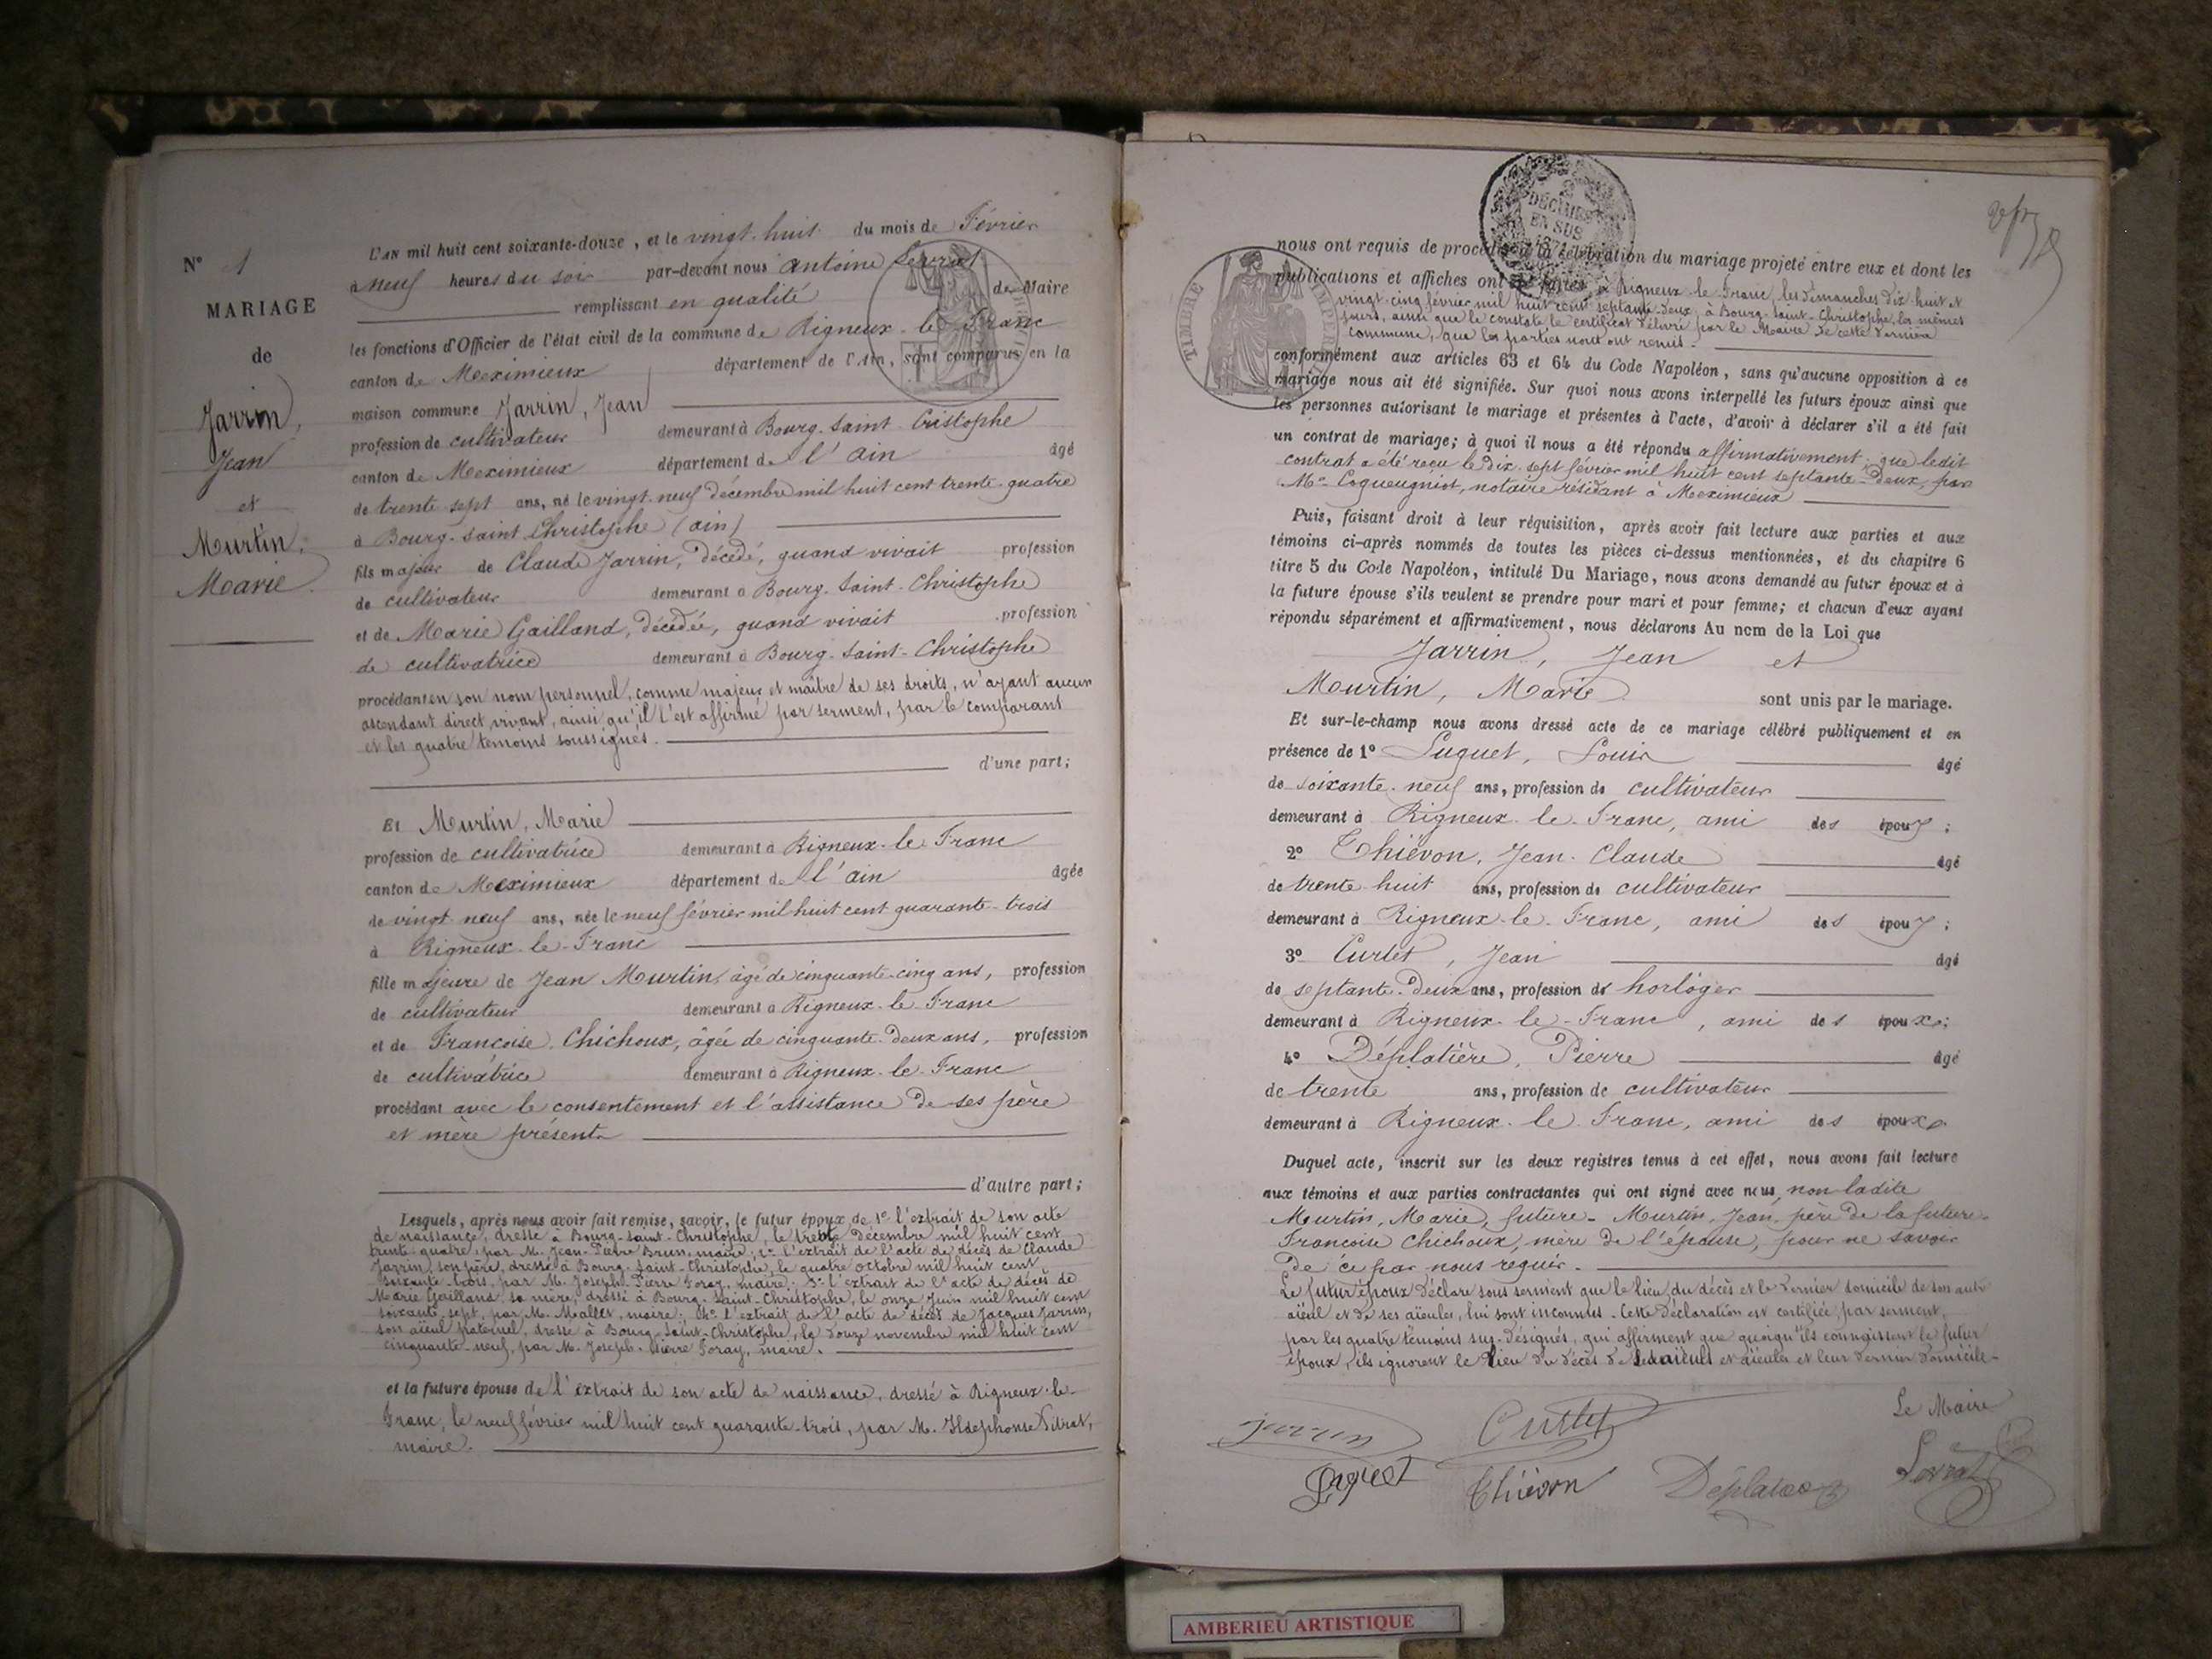 N° 1
MARIAGE
de
Jarrin,
Jean
et
Murtin,
Marie.
L'AN mil huit cent soixante-douze, et le vingt-huit du mois de Février
à neuf heures du soir par-devant nous Antoine
de Maire
remplissant en qualité
les fonctions d'Officier de l'état civil de la commune de Rigneux-le-Franc
canton de Meximieux département de l'Ain, sont comparus en la
maison commune Jarrin, Jean
profession de cultivateur demeurant à Bourg-Saint-Cristophe
canton de Meximieux département de l'ain âgé
de trente-sept ans, né le vingt-neuf décembre mil huit cent trente-quatre
à Bourg-Saint-Christophe (ain)
fils majeur de Claude Jarrin, décédé, quand vivait profession
de cultivateur demeurant à Bourg-Saint-Christophe
et de Marie Gailland, décédée, quand vivait profession
de cultivatrice demeurant à Bourg-Saint-Christophe
procédant en son nom personnel, comme majeur et maître de ses droits, n'ayant aucun
ascendant direct, vivant, ainsi qu'il l'est affirmé par serment, par le comparant
et les quatre témoins soussignés.
d'une part;
Et Murtin, Marie
profession de cultivatrice demeurant à Rigneux-le-Franc
canton de Meximieux département de l'ain âgée
de vingt-neuf ans, née le neuf février mil huit cent quarante-trois
à Rigneux-le-Franc
fille majeure de Jean Murtin, âgé de cinquante-cinq ans, profession
de cultivateur demeurant à Rigneux-le-Franc
et de Francoise Chichoux, âgée de cinquante-deux ans, profession
de cultivatrice demeurant à Rigneux-le-Franc
procédant avec le consentement et l'assistance de ses père
et mère présents
d'autre part;
Lesquels, après nous avoir fait remise, savoir, le futur époux de 1° l'extrait de son acte
de naissance, dressé à Bourg-Saint-Christophe, le trente Décembre mil huit cent
trente-quatre, par M. Jean-Pierre Brun, maire; 2° l'extrait de l'acte de décès de Claude
Jarrin, son père, dressé à Bourg-Saint-Christophe, le quatre octobre mil huit cent
soixante-trois, par M. Joseph-Pierre Foray, maire; 3° l'extrait de l'acte de décès de
Marie Gailland, sa mère, dressé à Bourg-Saint-Christophe, le onze Juin mil huit cent
soixante-sept, par M. Mallet, maire; 4° l'extrait de l'acte de décès de Jacques Jarrin,
son aïeul paternel, dressé à Bourg-Saint-Christophe, le douze novembre mil huit cent
cinquante-neuf, par M. Joseph-Pierre Foray, maire.
et la future épouse de l'extrait de son acte de naissance, dressé à Rigneux-le-
Franc, le neuf février mil huit cent quarante-trois, par M. Ildephonse
maire.
2
DÉCIMES
EN SUS
1871
TIMBRE IMPERIAL
nous ont requis de procéder à la célébration du mariage projeté entre eux et dont les
publications et affiches ont été faites à Rigneux-le-Franc, les dimanches dix-huit et
vingt-cinq février mil huit cent septante-deux, à Bourg-Saint-Christophe, les mêmes
jours, ainsi que le constate le certificat délivré par le Maire de cette dernière
commune, que les parties nous ont remis.
conformément aux articles 63 et 64 du Code Napoléon, sans qu'aucune opposition à ce
mariage nous ait été signifiée. Sur quoi nous avons interpellé les futurs époux ainsi que
les personnes autorisant le mariage et présentes à l'acte, d'avoir à déclarer s'il a été fait
un contrat de mariage; à quoi il nous a été répondu affirmativement; que ledit
contrat a été reçu le dix-sept février mil huit cent septante-deux, par
Me Coqueugniot, notaire résidant à Meximieux
Puis, faisant droit à leur réquisition, après avoir fait lecture aux parties et aux
témoins ci-après nommés de toutes les pièces ci-dessus mentionnées, et du chapitre 6
titre 5 du Code Napoléon, intitulé Du Mariage, nous avons demandé au futur époux et à
la future épouse s'ils veulent se prendre pour mari et pour femme; et chacun d'eux ayant
répondu séparément et affirmativement, nous déclarons Au nom de la Loi que
Jarrin, Jean et
Murtin, Marie sont unis par le mariage.
Et sur-le-champ nous avons dressé acte de ce mariage célébré publiquement et en
présence de 1° Luguet, Louis âgé
de soixante-neuf ans, profession de cultivateur
demeurant à Rigneux-le-Franc, ami des époux;
2° Thiévon, Jean-Claude âgé
de trente-huit ans, profession de cultivateur
demeurant à Rigneux-le-Franc, ami des époux;
3° Curtet, Jean âgé
de septante-deux ans, profession de horloger
demeurant à Rigneux-le-Franc, ami des époux;
4° Déplatière, Pierre âgé
de trente ans, profession de cultivateur
demeurant à Rigneux-le-Franc, ami des époux.
Duquel acte, inscrit sur les deux registres tenus à cet effet, nous avons fait lecture
aux témoins et aux parties contractantes qui ont signé avec nous, non ladite
Murtin, Marie, future - Murtin, Jean, père de la future -
Francoise Chichoux, mère de l'épouse, pour ne savoir
De ce par nous requis.
Le futur époux déclare sous serment que le lieu du décès et le dernier domicile de son autre
aïeul et de ses aïeules, lui sont inconnus. Cette déclaration est certifiée par serment,
par les quatre témoins sus-désignés, qui affirment que quoiqu'ils connaissent le futur
époux, ils ignorent le lieu du décès de ses aïeuls et aïeules et leur dernier domicile.
Le Maire
Jarrin Curtet
Luguet Thiévon
AMBERIEU ARTISTIQUE